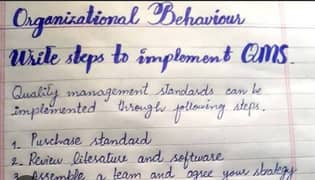 Organizational Behaviour
Write steps to implement QMS.
Quality management standards can be
implemented through following steps.
1. Purchase standard
2. Review literature and software
3. Assemble a team and agree your strategy